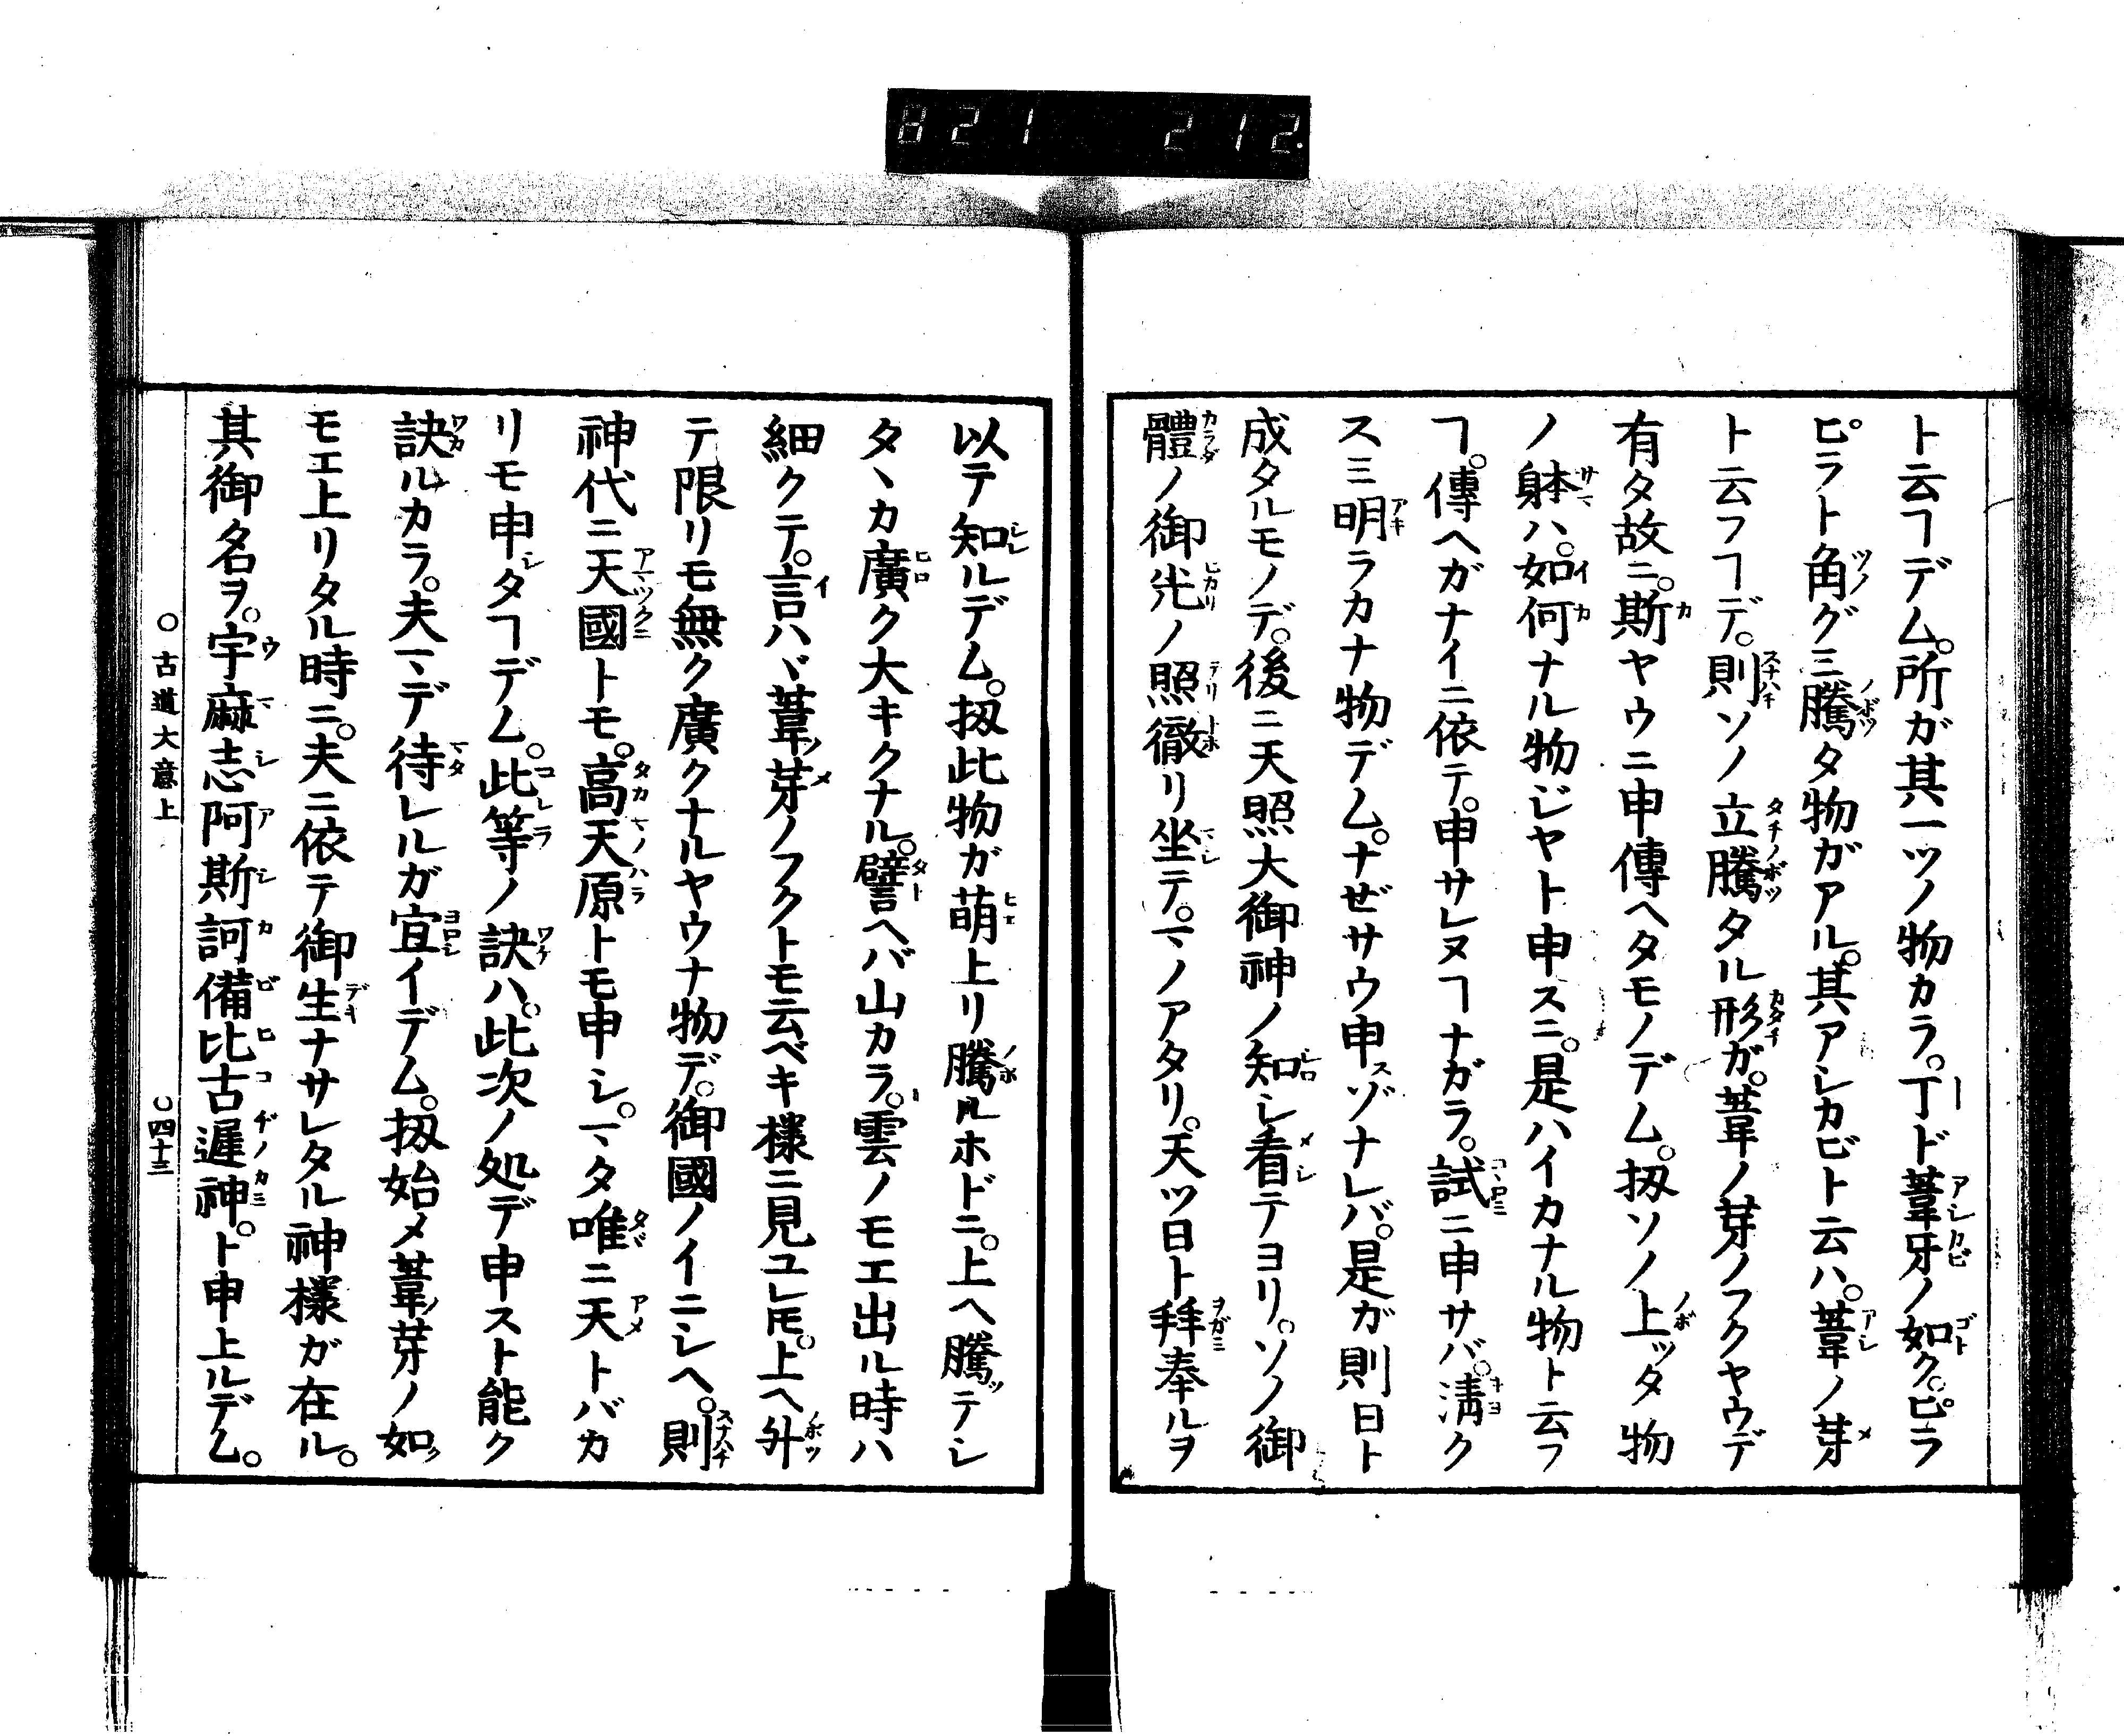 821 212.
ト云ヿデム。所ガ其一ツノ物カラ。丁ド葦牙ノ如ク。ピラ
ピラト角グミ騰タ物ガアル。其アシカビト云ハ。葦ノ芽
ト云フヿデ。則ソノ立騰タル形ガ。葦ノ芽ノフクヤウデ
有タ故ニ。斯ヤウニ申傳ヘタモノデム。扨ソノ上ッタ物
ノ躰ハ。如何ナル物ジャト申スニ。是ハイカナル物ト云フ
ヿ。傳ヘガナイニ依テ。申サレヌヿナガラ。試ニ申サバ。淸ク
スミ明ラカナ物デム。ナゼサウ申ゾナレバ。是ガ則日ト
成タルモノデ。後ニ天照大御神ノ知シ看テヨリ。ソノ御
體ノ御光ノ照徹リ坐テ。マノアタリ。天ツ日ト拜奉ルヲ
以テ知ルデム。扨此物ガ萌上リ騰ルホドニ。上ヘ騰テシ
タヽカ廣ク大キクナル。譬ヘバ山カラ。雲ノモエ出ル時ハ
細クテ。言ハヾ葦ノ芽ノフクトモ云ベキ樣ニ見ユレ𪜈。上ヘ升
テ限リモ無ク廣クナルヤウナ物デ。御國ノイニシヘ。則
神代ニ天國トモ。高天原トモ申シ。マタ唯ニ天トバカ
リモ申タヿデム。此等ノ訣ハ。此次ノ処デ申スト能ク
訣ルカラ。夫マデ待レルガ宜イデム。扨始メ葦ノ芽ノ如
モエ上リタル時ニ。夫ニ依テ御生ナサレタル神樣ガ在ル。
其御名ヲ。宇麻志阿斯訶備比古遲神。ト申上ルデム。
○古道大意上 ○四十三